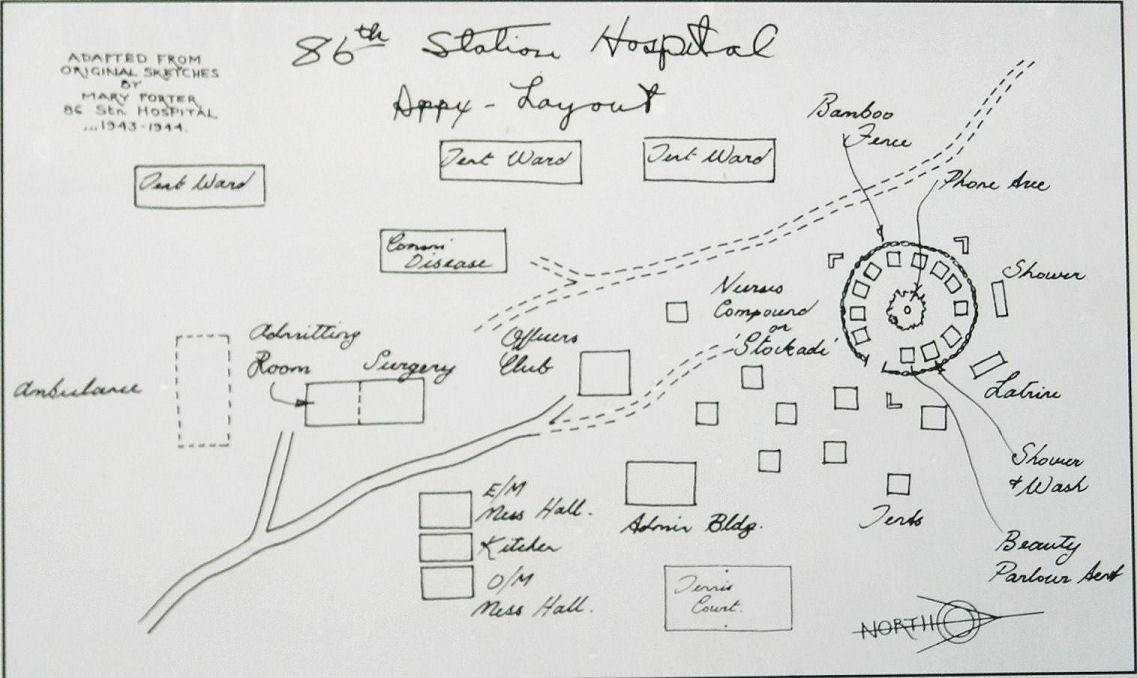 86th Station Hospital
Appx - Layout
ADAPTED FROM
ORIGINAL SKETCHES
BY
MARY PORTER
86 Stn. HOSPITAL
...1943-1944.
Tent Ward
Tent Ward
Tent Ward
Bamboo
Fence
Phone Aree
Comm'
Disease
Nurses
Compound
or
'Stockade'
Shower
Admitting
Room
Surgery
Officers
Club
Ambulance
Latrine
Shower
& Wash
E/M
Mess Hall.
Kitchen
O/M
Mess Hall.
Admin Bldg.
Tents
Beauty
Parlour
Tennis
Court.
NORTH